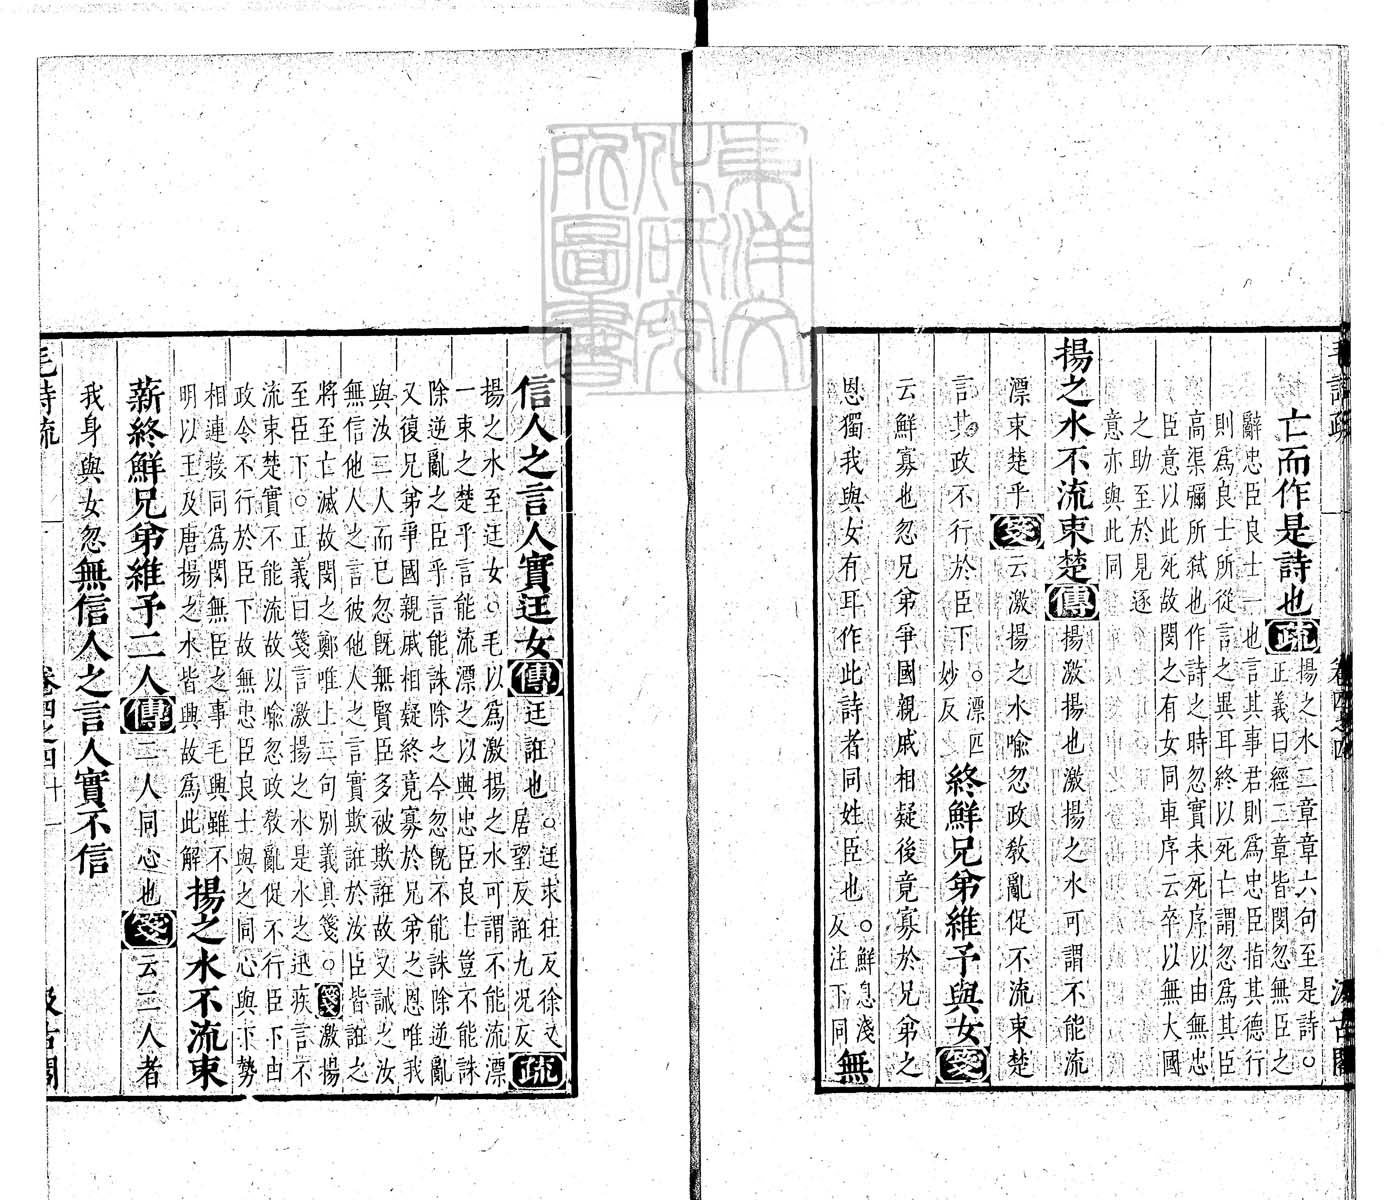 毛詩疏 卷四之四 汲古閣
亡而作是詩也疏揚之水二章章六句至是詩。
正義曰經二章皆閔忽無臣之
辭忠臣良士一也言其事君則爲忠臣指其德行
則爲良士所從言之異耳終以死亡謂忽爲其臣
高渠彌所弒也作詩之時忽實未死序以由無忠
臣意以此死故閔之有女同車序云卒以無大國
之助至於見逐
意亦與此同
揚之水不流束楚傳揚激揚也激揚之水可謂不能流
漂束楚乎箋云激揚之水喻忽政教亂促不流束楚
言其政不行於臣下。漂匹妙反終鮮兄弟維予與女箋
云鮮寡也忽兄弟爭國親戚相疑後竟寡於兄弟之
恩獨我與女有耳作此詩者同姓臣也。鮮息淺反注下同無
信人之言人實迋女傳迋誑也。迋求往反徐又居望反誑九況反疏
揚之水至迋女。毛以爲激揚之水可謂不能流漂
一束之楚乎言能流漂之以興忠臣良士豈不能誅
除逆亂之臣乎言能誅除之今忽旣不能誅除逆亂
又復兄弟爭國親戚相疑終竟寡於兄弟之恩唯我
與汝二人而已忽旣無賢臣多被欺誑故又誡之汝
無信他人之言彼他人之言實欺誑於汝臣皆誑之
將至亡滅故閔之鄭唯上二句別義具箋。箋激揚
至臣下。正義曰箋言激揚之水是水之迅疾言不
流束楚實不能流故以喻忽政教亂促不行臣下由
政令不行於臣下故無忠臣良士與之同心與下勢
相連接同爲閔無臣之事毛興雖不
明以王及唐揚之水皆興故爲此解揚之水不流束
薪終鮮兄弟維予二人傳二人同心也箋云二人者
我身與女忽無信人之言人實不信
毛詩疏 卷四之四 十一 汲古閣
東洋文化研究所圖書